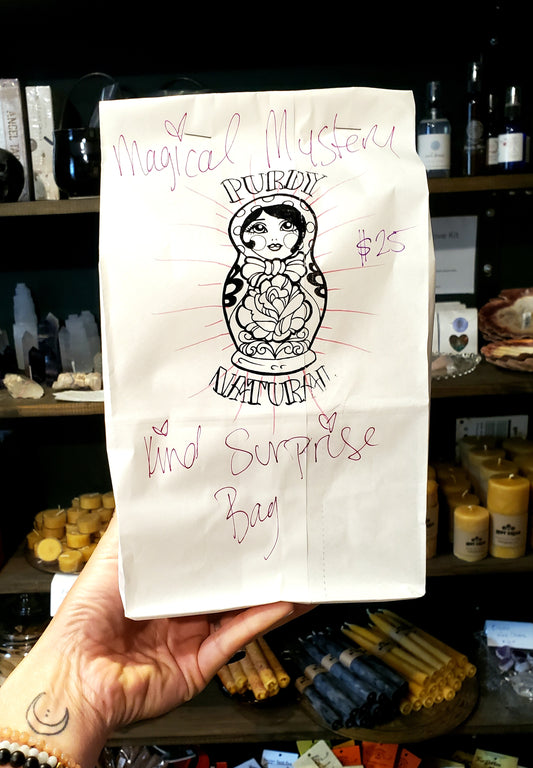 Magical Mystery
PURDY
$25
NATURAL
Kind Surprise
Bag